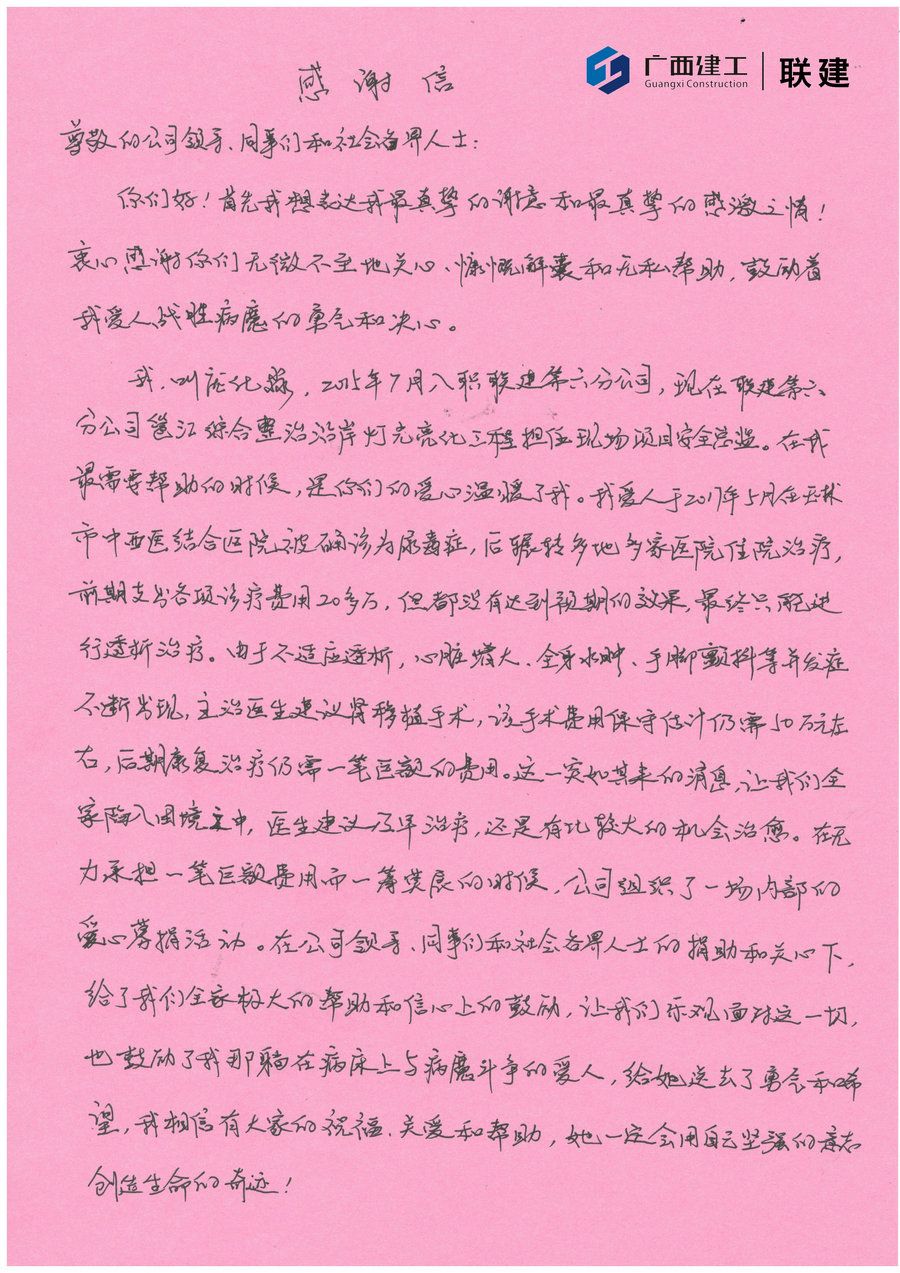 广西建工 联建
Guangxi Construction
感谢信
尊敬的公司领导、同事们和社会各界人士:
你们好!首先我想表达我最真挚的谢意和最真挚的感激之情!
衷心感谢你们无微不至地关心、慷慨解囊和无私帮助,鼓励着
我爱人战胜病魔的勇气和决心。
我叫庞化淼,2015年7月入职联建第六分公司,现在联建第六
分公司邕江综合整治沿岸灯光亮化工程担任现场项目安全总监。在我
最需要帮助的时候,是你们的爱心温暖了我。我爱人于2017年5月在玉林
市中西医结合医院被确诊为尿毒症,后辗转多地多家医院住院治疗,
前期支出各项诊疗费用20多万,但都没有达到预期的效果,最终只能进
行透析治疗。由于不适应透析,心脏增大、全身水肿、手脚颤抖等并发症
不断出现,主治医生建议肾移植手术,该手术费用保守估计仍需50万元左
右,后期康复治疗仍需一笔巨额的费用。这一突如其来的消息,让我们全
家陷入困境之中,医生建议及早治疗,还是有比较大的机会治愈。在无
力承担一笔巨额费用而一筹莫展的时候,公司组织了一场内部的
爱心募捐活动。在公司领导、同事们和社会各界人士的捐助和关心下,
给了我们全家极大的帮助和信心上的鼓励,让我们乐观面对这一切,
也鼓励了我那躺在病床上与病魔斗争的爱人,给她送去了勇气和希
望,我相信有大家的祝福、关爱和帮助,她一定会用自己坚强的意志
创造生命的奇迹!